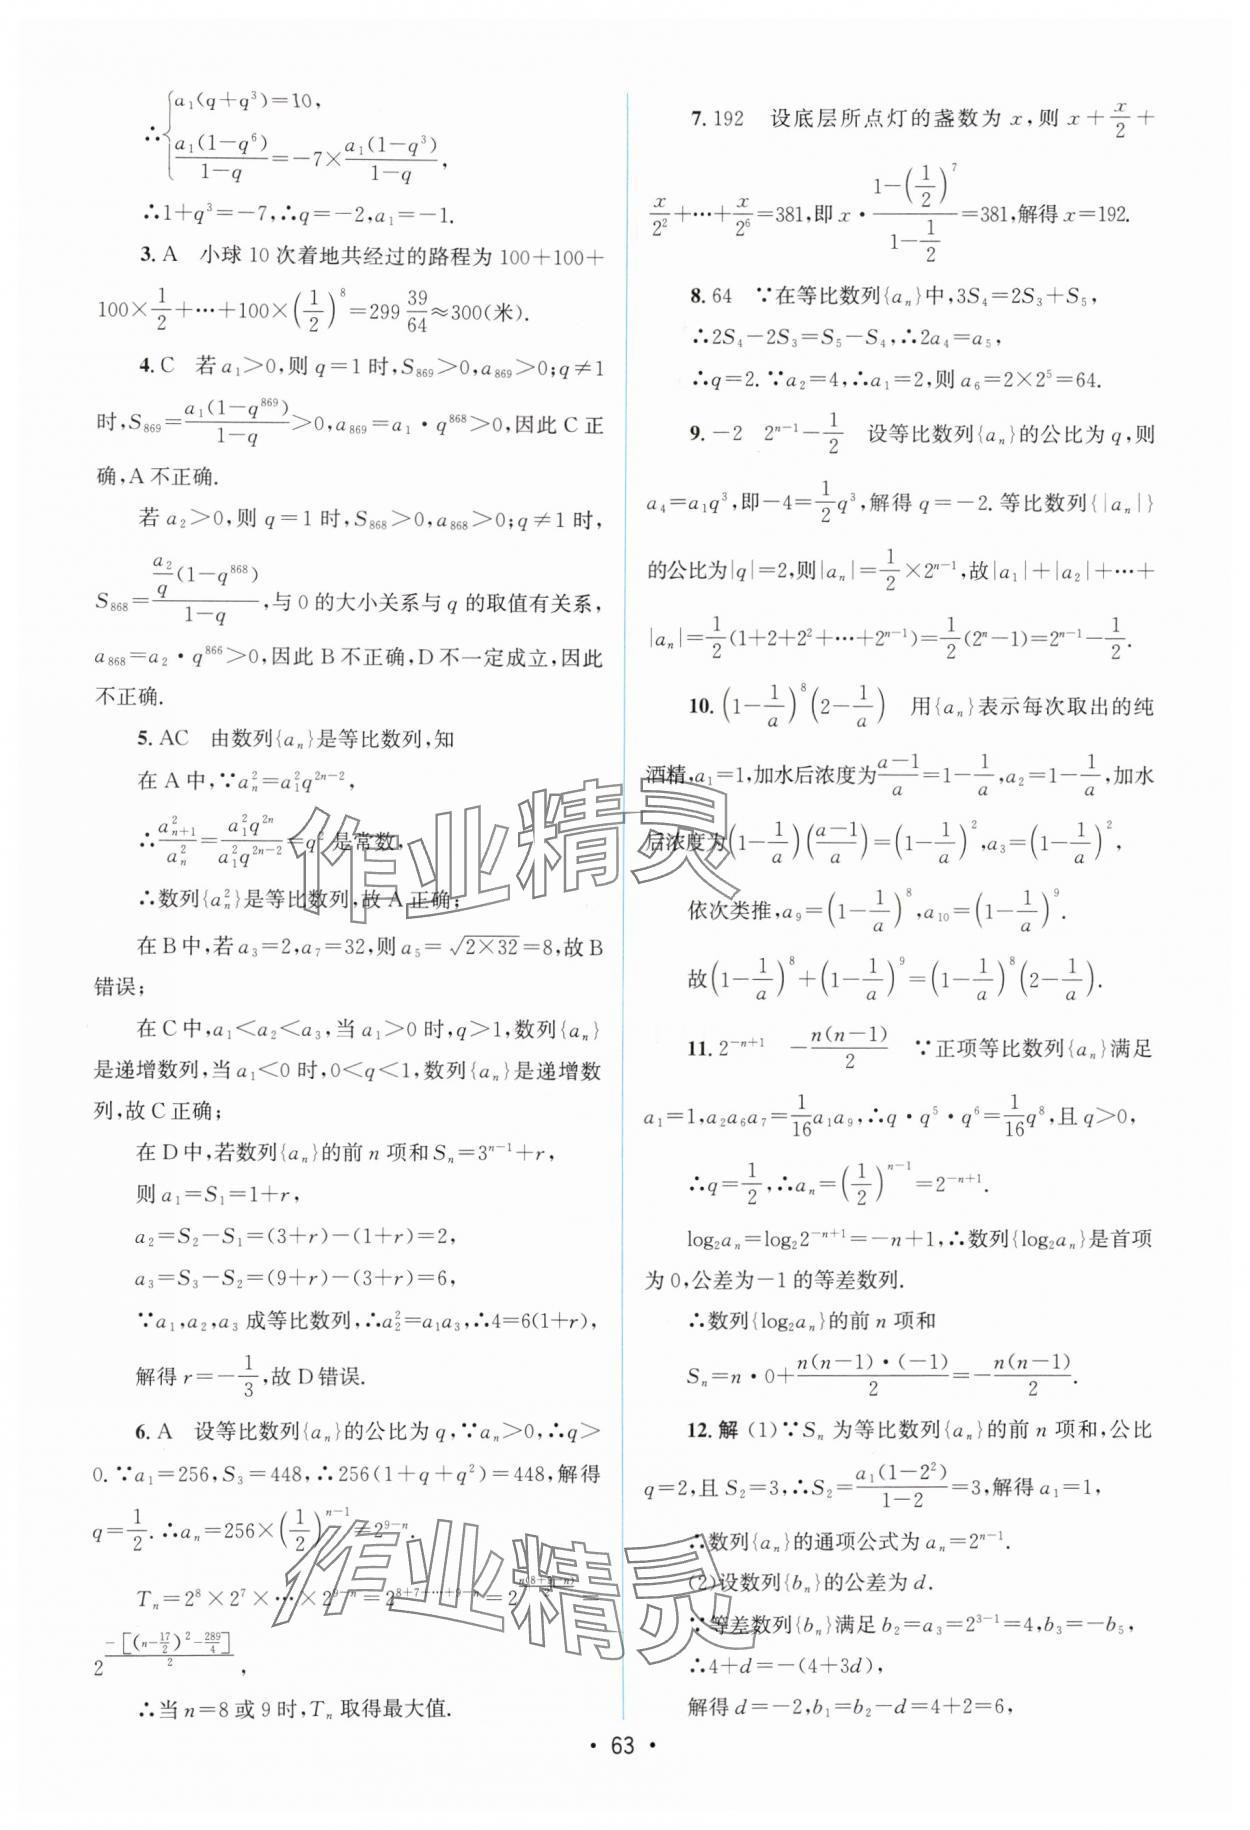 ∴{a₁(q+q³)=10,
a₁(1-q⁶)/(1-q)=-7×a₁(1-q³)/(1-q),
∴1+q³=-7,∴q=-2,a₁=-1.
3. A 小球 10 次着地共经过的路程为 100+100+
100×1/2+···+100×(1/2)⁸=299 39/64≈300(米).
4. C 若 a₁>0,则 q=1 时,S₈₆₉>0,a₈₆₉>0;q≠1
时,S₈₆₉=a₁(1-q⁸⁶⁹)/(1-q)>0,a₈₆₉=a₁·q⁸⁶⁸>0,因此 C 正
确,A 不正确.
若 a₂>0,则 q=1 时,S₈₆₈>0,a₈₆₈>0;q≠1 时,
S₈₆₈=(a₂/q)(1-q⁸⁶⁸)/(1-q),与 0 的大小关系与 q 的取值有关系,
a₈₆₈=a₂·q⁸⁶⁶>0,因此 B 不正确,D 不一定成立,因此
不正确.
5. AC 由数列{aₙ}是等比数列,知
在 A 中,∵aₙ²=a₁²q²ⁿ⁻²,
∴aₙ₊₁²/aₙ²=a₁²q²ⁿ/a₁²q²ⁿ⁻²=q² 是常数,
∴数列{aₙ²}是等比数列,故 A 正确;
在 B 中,若 a₃=2,a₇=32,则 a₅=√(2×32)=8,故 B
错误;
在 C 中,a₁<a₂<a₃,当 a₁>0 时,q>1,数列{aₙ}
是递增数列,当 a₁<0 时,0<q<1,数列{aₙ}是递增数
列,故 C 正确;
在 D 中,若数列{aₙ}的前 n 项和 Sₙ=3ⁿ⁻¹+r,
则 a₁=S₁=1+r,
a₂=S₂-S₁=(3+r)-(1+r)=2,
a₃=S₃-S₂=(9+r)-(3+r)=6,
∵a₁,a₂,a₃ 成等比数列,∴a₂²=a₁a₃,∴4=6(1+r),
解得 r=-1/3,故 D 错误.
6. A 设等比数列{aₙ}的公比为 q,∵aₙ>0,∴q>
0.∵a₁=256,S₃=448,∴256(1+q+q²)=448,解得
q=1/2.∴aₙ=256×(1/2)ⁿ⁻¹=2⁹⁻ⁿ.
Tₙ=2⁸×2⁷×···×2⁹⁻ⁿ=2⁸⁺⁷⁺···⁺⁹⁻ⁿ=2^(n(8+9-n)/2)=
2^(-[(n-17/2)²-289/4]/2),
∴当 n=8 或 9 时,Tₙ 取得最大值.
7. 192 设底层所点灯的盏数为 x,则 x+x/2+
x/2²+···+x/2⁶=381,即 x·(1-(1/2)⁷)/(1-1/2)=381,解得 x=192.
8. 64 ∵在等比数列{aₙ}中,3S₄=2S₃+S₅,
∴2S₄-2S₃=S₅-S₄,∴2a₄=a₅,
∴q=2.∵a₂=4,∴a₁=2,则 a₆=2×2⁵=64.
9. -2 2ⁿ⁻¹-1/2 设等比数列{aₙ}的公比为 q,则
a₄=a₁q³,即-4=1/2q³,解得 q=-2.等比数列{|aₙ|}
的公比为|q|=2,则|aₙ|=1/2×2ⁿ⁻¹,故|a₁|+|a₂|+···+
|aₙ|=1/2(1+2+2²+···+2ⁿ⁻¹)=1/2(2ⁿ-1)=2ⁿ⁻¹-1/2.
10. (1-1/a)⁸(2-1/a) 用{aₙ}表示每次取出的纯
酒精,a₁=1,加水后浓度为(a-1)/a=1-1/a,a₂=1-1/a,加水
后浓度为(1-1/a)((a-1)/a)=(1-1/a)²,a₃=(1-1/a)²,
依次类推,a₉=(1-1/a)⁸,a₁₀=(1-1/a)⁹.
故(1-1/a)⁸+(1-1/a)⁹=(1-1/a)⁸(2-1/a).
11. 2⁻ⁿ⁺¹ -n(n-1)/2 ∵正项等比数列{aₙ}满足
a₁=1,a₂a₆a₇=1/16a₁a₉,∴q·q⁵·q⁶=1/16q⁸,且 q>0,
∴q=1/2,∴aₙ=(1/2)ⁿ⁻¹=2⁻ⁿ⁺¹.
log₂aₙ=log₂2⁻ⁿ⁺¹=-n+1,∴数列{log₂aₙ}是首项
为 0,公差为-1 的等差数列.
∴数列{log₂aₙ}的前 n 项和
Sₙ=n·0+n(n-1)·(-1)/2=-n(n-1)/2.
12. 解 (1)∵Sₙ 为等比数列{aₙ}的前 n 项和,公比
q=2,且 S₂=3,∴S₂=a₁(1-2²)/(1-2)=3,解得 a₁=1,
∴数列{aₙ}的通项公式为 aₙ=2ⁿ⁻¹.
(2)设数列{bₙ}的公差为 d.
∵等差数列{bₙ}满足 b₂=a₃=2³⁻¹=4,b₃=-b₅,
∴4+d=-(4+3d),
解得 d=-2,b₁=b₂-d=4+2=6,
作业精灵
作业精灵
·63·